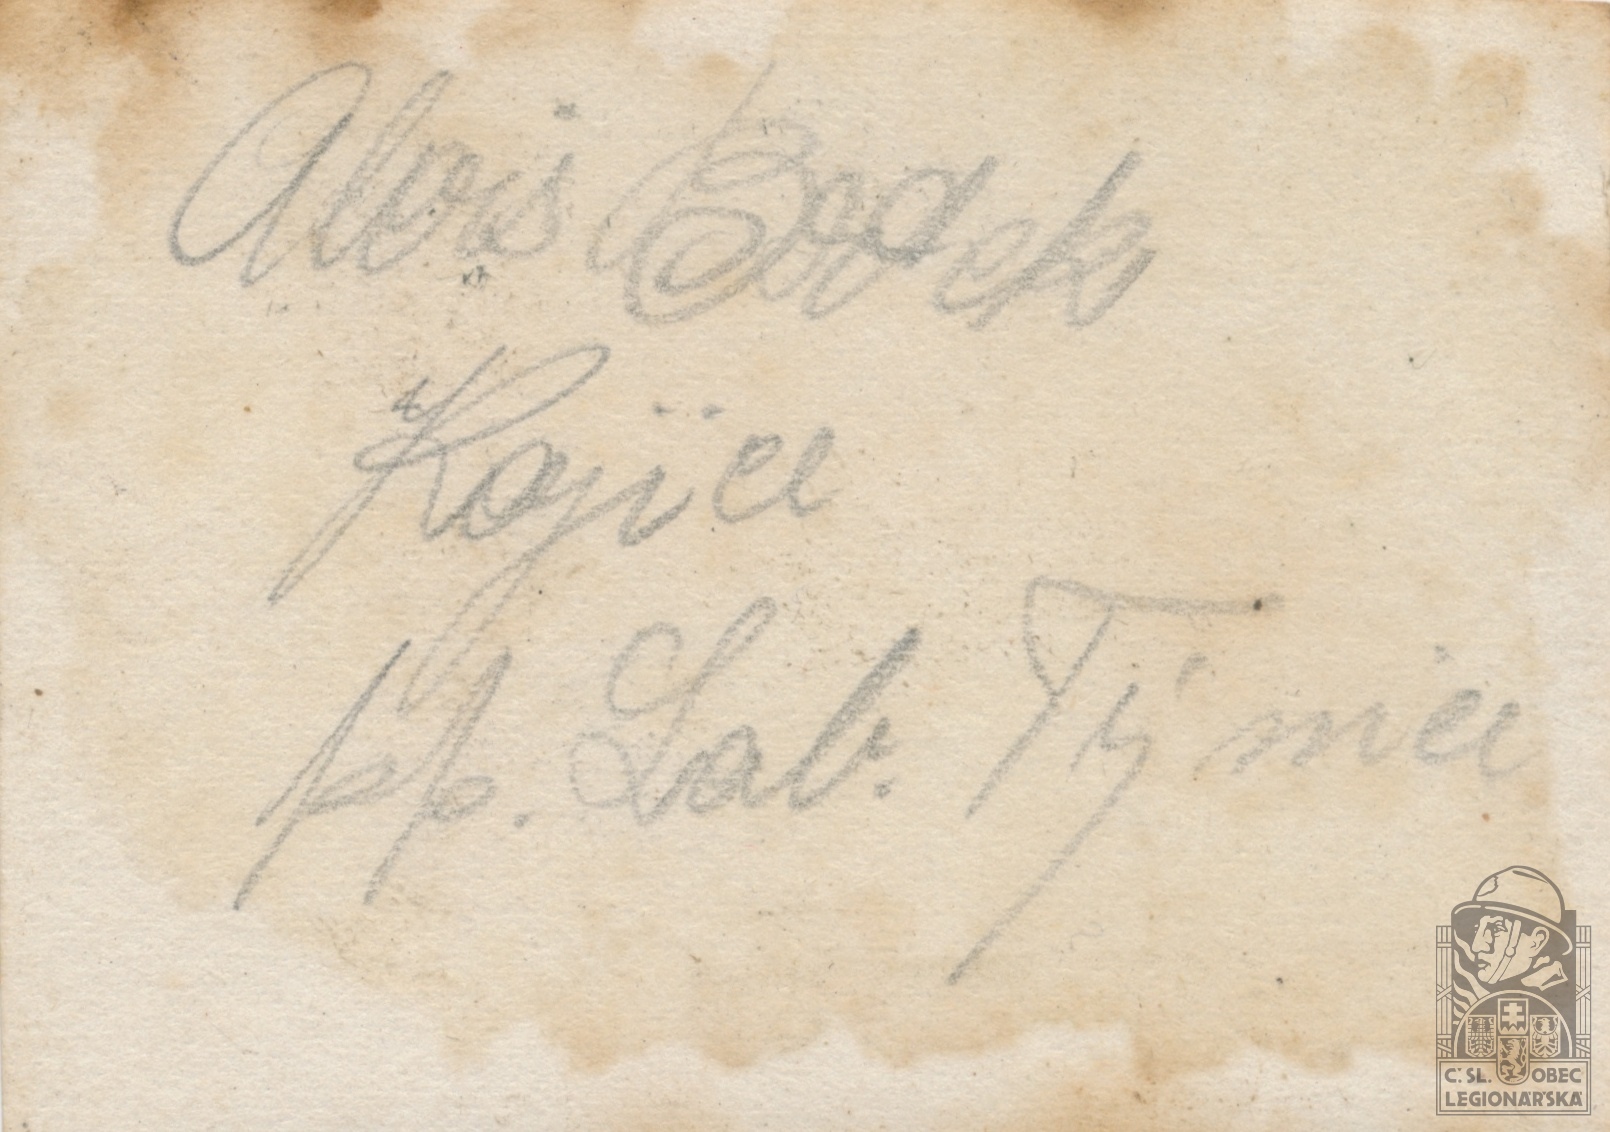 Alois Bodek
Kojice
pp. Lab. Týnice
Č. SL. OBEC
LEGIONÁŘSKÁ